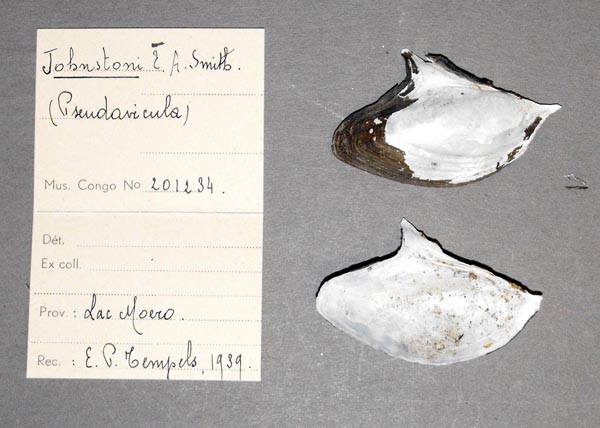 Johnstoni E. A. Smith.
(Pseudavicula)
Mus. Congo No 201234.
Dét.
Ex coll.
Prov. : Lac Moero.
Rec. : E. P. Tempels, 1939.